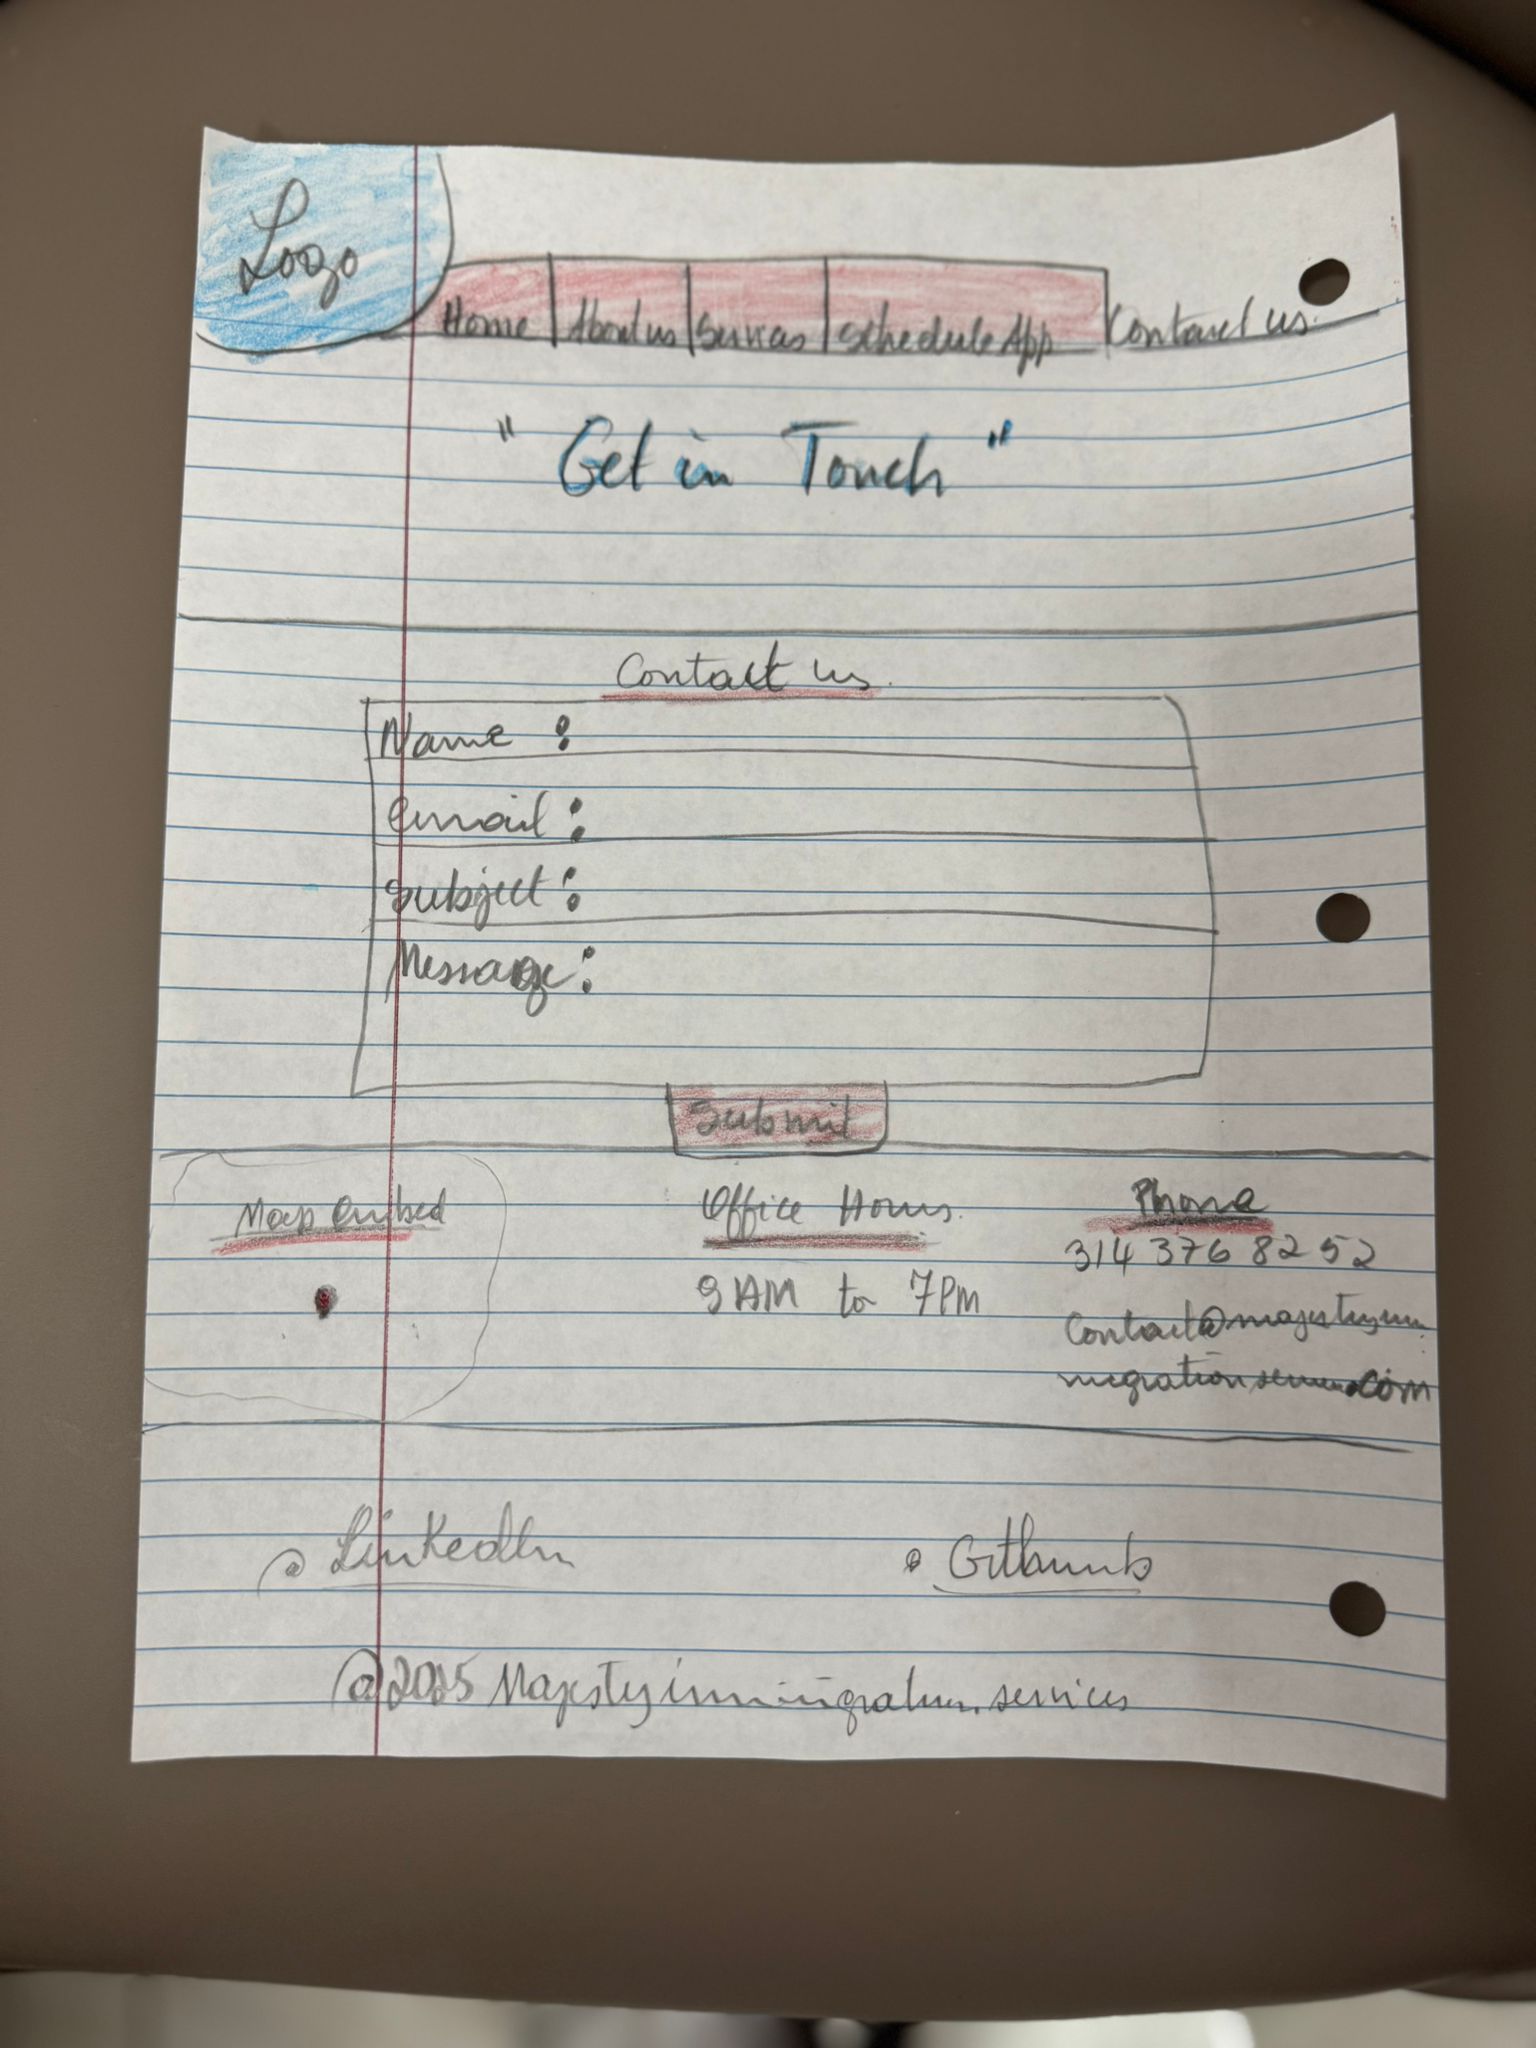 Logo
Home About us Services Schedule App Contact us.
" Get in Touch "
Contact us.
Name :
email :
Subject :
Message :
Submit
Map Embed
Office Hours.
9 AM to 7PM
Phone
314 376 82 52
Contact@majestyim
migrationservices.com
@ LinkedIn
@2025 Majesty immigration services